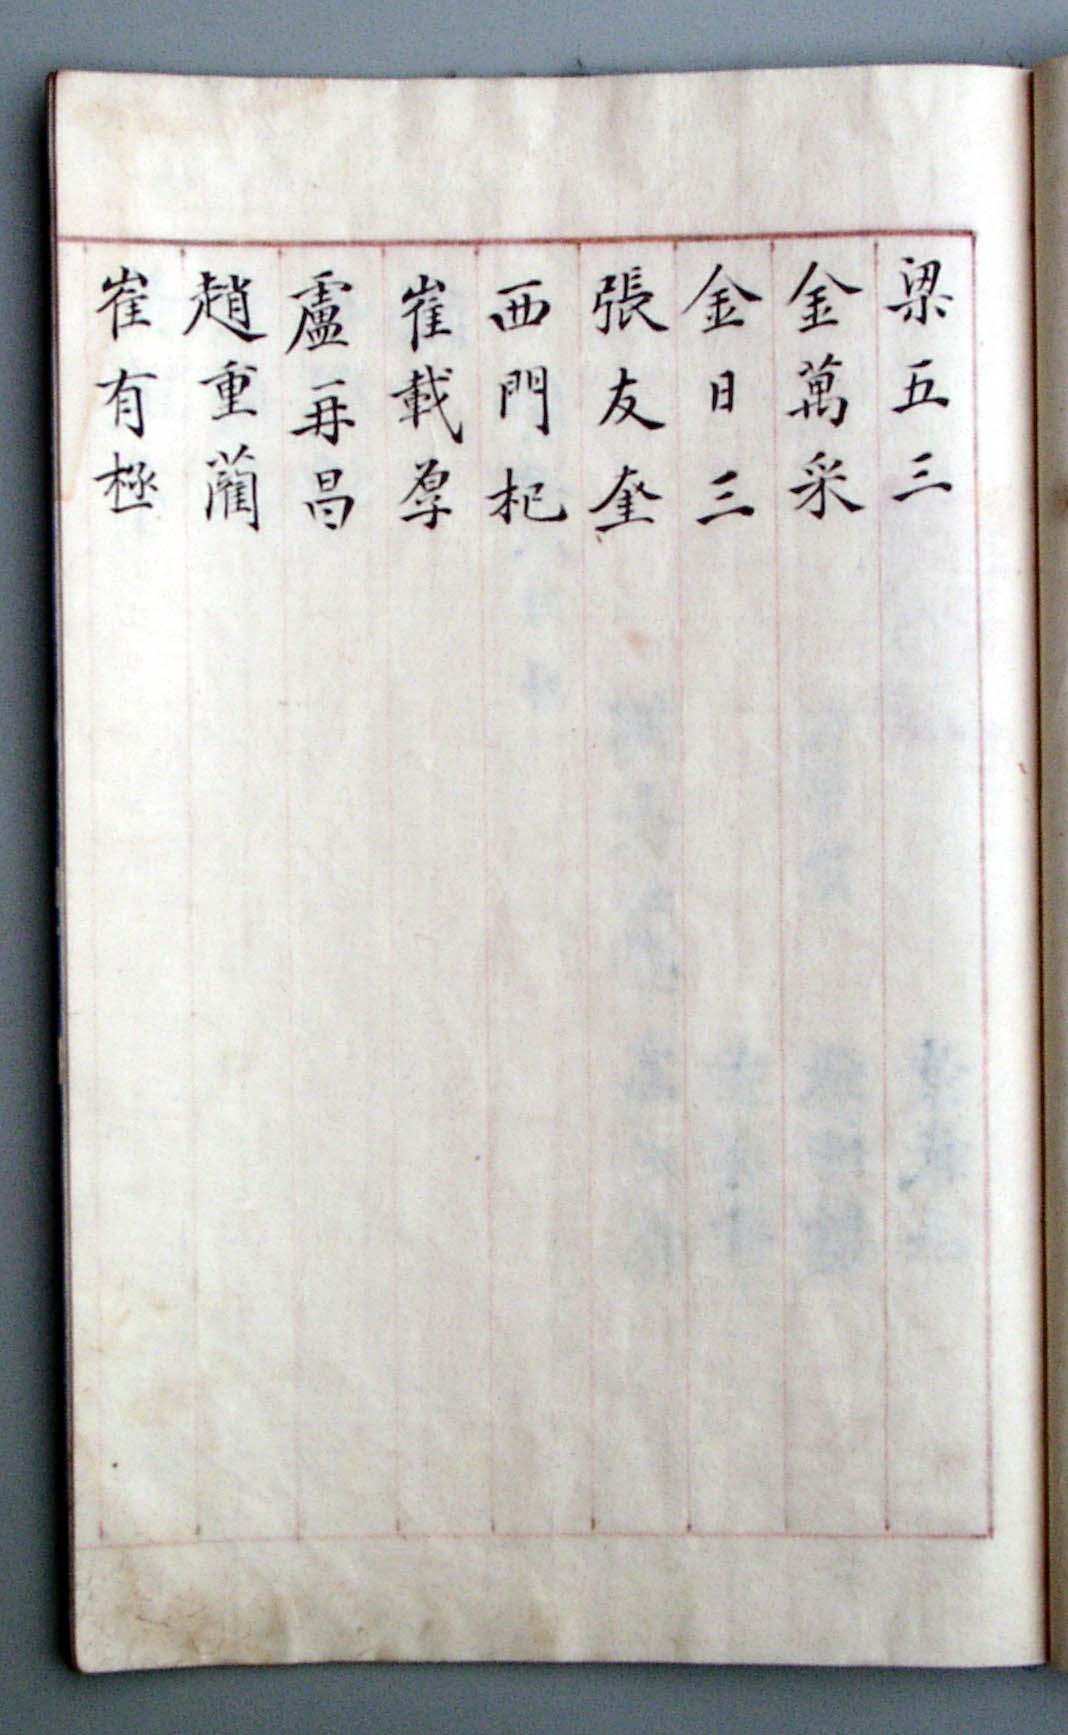 梁五三
金萬采
金日三
張友奎
西門杞
崔載厚
盧再昌
趙重蘭
崔有極